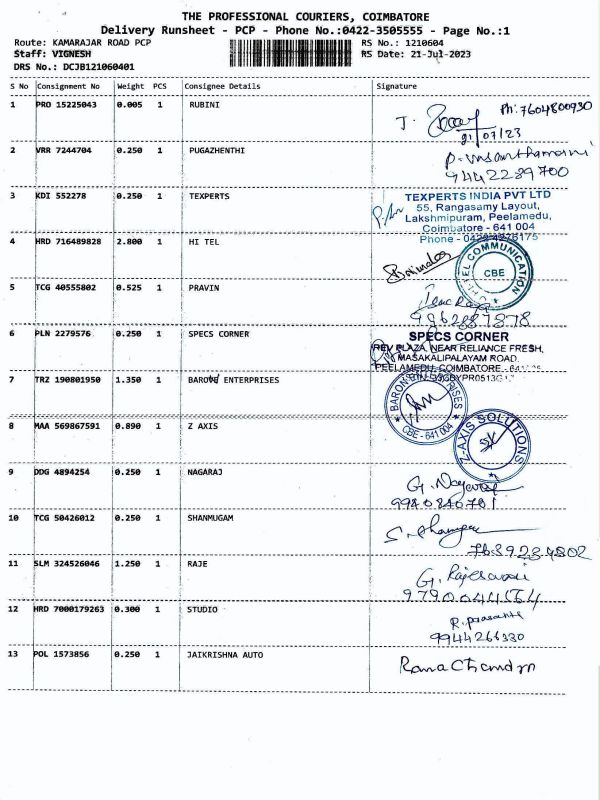 THE PROFESSIONAL COURIERS, COIMBATORE
Delivery Runsheet - PCP - Phone No.:0422-3505555 - Page No.:1
Route: KAMARAJAR ROAD PCP RS No.: 1210604
Staff: VIGNESH RS Date: 21-Jul-2023
DRS No.: DCJB121060401
S No Consignment No Weight PCS Consignee Details Signature
1 PRO 15225043 0.005 1 RUBINI
Ph: 7604800930
J.
21/07/23
2 VRR 7244704 0.250 1 PUGAZHENTHI
9442289700
3 KDI 552278 0.250 1 TEXPERTS
TEXPERTS INDIA PVT LTD
55, Rangasamy Layout,
Lakshmipuram, Peelamedu,
Coimbatore - 641 004
Phone - 0422 4276175
4 HRD 716489828 2.800 1 HI TEL
COMMUNICATION
CBE
5 TCG 40555802 0.525 1 PRAVIN
9962887878
6 PLN 2279576 0.250 1 SPECS CORNER
SPECS CORNER
REV PLAZA, NEAR RELIANCE FRESH,
MASAKALIPALAYAM ROAD,
PEELAMEDU, COIMBATORE -
7 TRZ 190801950 1.350 1 BARON ENTERPRISES
CBE - 641 004
8 MAA 569867591 0.890 1 Z AXIS
Z-AXIS SOLUTIONS
9 DDG 4894254 0.250 1 NAGARAJ
G. Nagaraj
10 TCG 50426012 0.250 1 SHANMUGAM
7639234802
11 SLM 324526046 1.250 1 RAJE
G. Rajeswari
9790044564
12 HRD 7000179263 0.300 1 STUDIO
R. prasanth
9944266330
13 POL 1573856 0.250 1 JAIKRISHNA AUTO
Rama Chandran